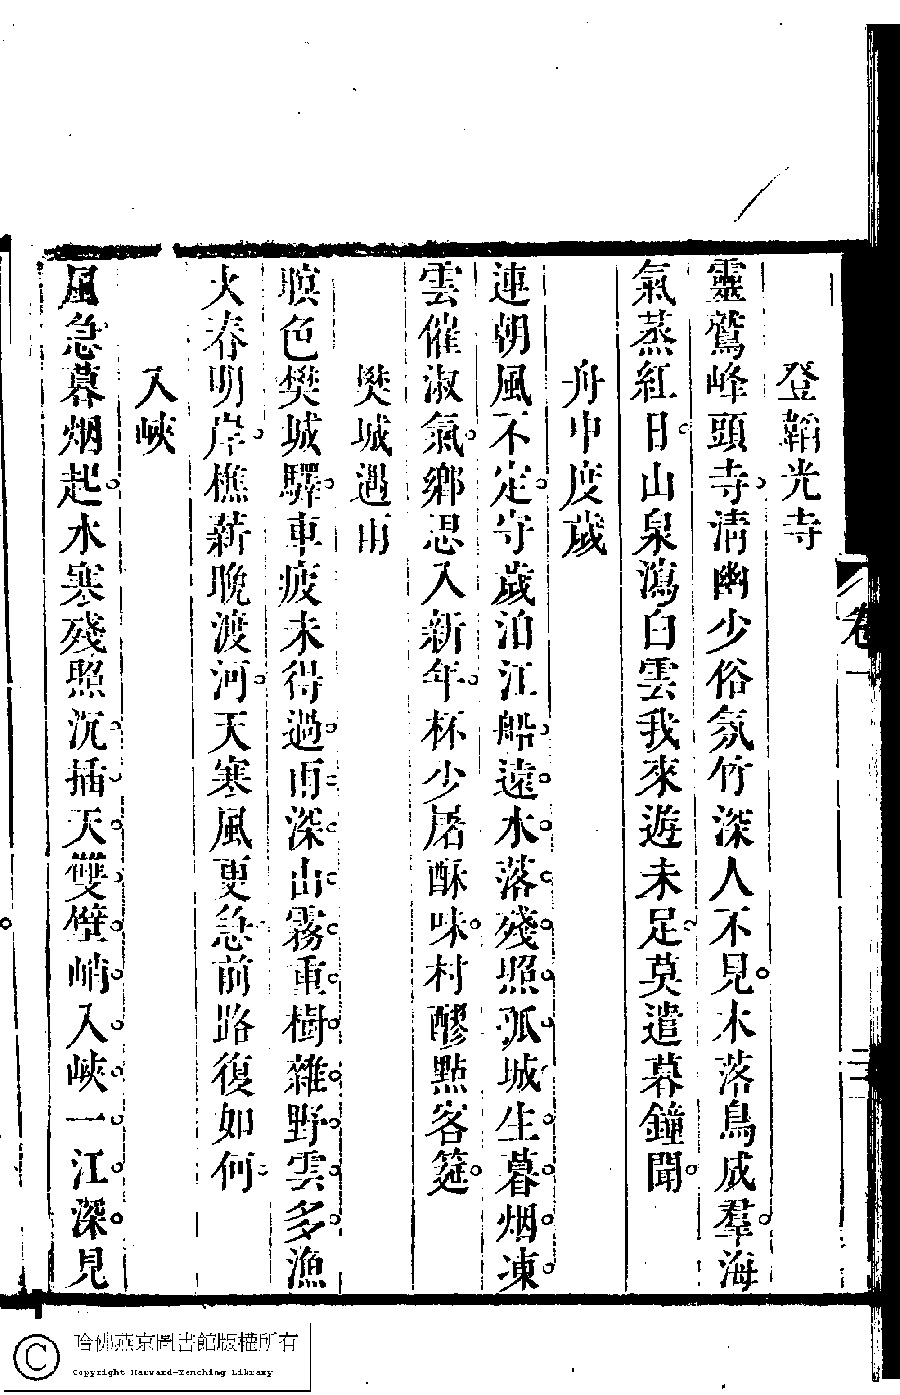 登韜光寺
靈鷲峰頭寺清幽少俗氛竹深人不見木落鳥成羣海
氣蒸紅日山泉瀉白雲我來遊未足莫遣暮鐘聞
舟中度歲
連朝風不定守歲泊江船遠水落殘照孤城生暮烟凍
雲催淑氣鄉思入新年杯少屠酥味村醪點客筵
樊城遇雨
暝色樊城驛車疲未得過雨深山霧重樹雜野雲多漁
火春明岸樵薪晚渡河天寒風更急前路復如何
入峽
風急暮烟起水寒殘照沉插天雙壁峭入峽一江深見
卷一
二
哈佛燕京圖書館版權所有
Copyright Harvard-Yenching Library